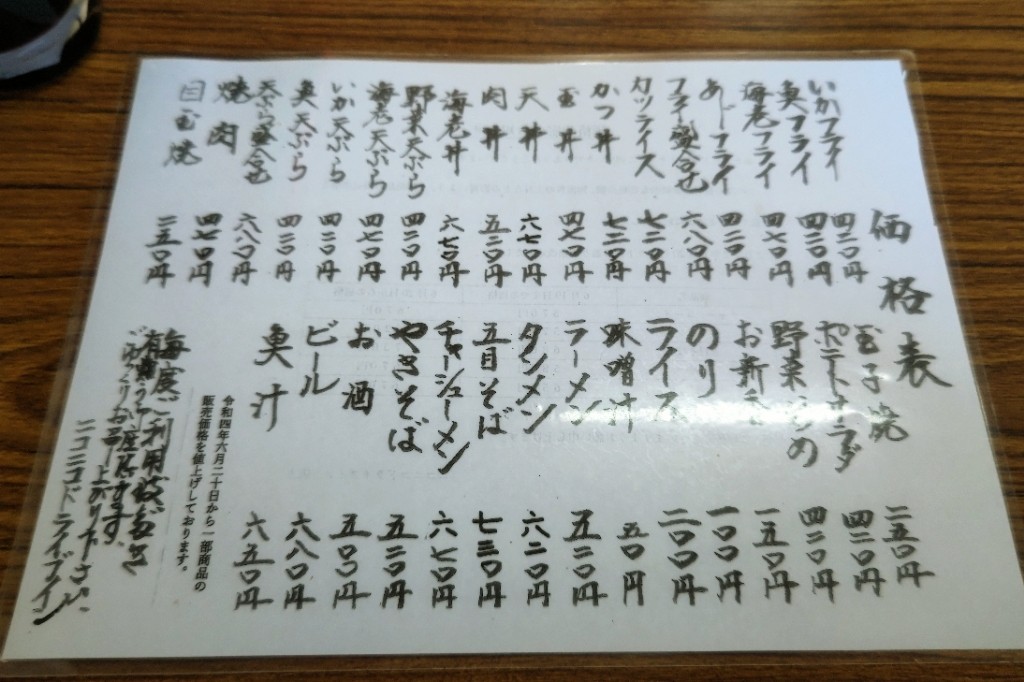 価格表
いかフライ 四二〇円
魚フライ 四二〇円
海老フライ 四七〇円
あじフライ 四二〇円
フライ盛合せ 六八〇円
カツライス 七二〇円
かつ丼 七二〇円
玉丼 四七〇円
天丼 六七〇円
肉丼 五二〇円
海老丼 六七〇円
野菜天ぷら 四二〇円
海老天ぷら 四七〇円
いか天ぷら 四二〇円
魚天ぷら 四二〇円
天ぷら盛合せ 六八〇円
焼肉 四七〇円
目玉焼 二五〇円
玉子焼 二五〇円
ポテトサラダ 四二〇円
野菜いため 四二〇円
お新香 一五〇円
のり 一〇〇円
ライス 二〇〇円
味噌汁 五〇円
ラーメン 五二〇円
タンメン 六二〇円
五目そば 七三〇円
チャーシューメン 六七〇円
やきそば 五二〇円
お酒 五〇〇円
ビール 六八〇円
魚汁 六五〇円
令和四年六月二十日から一部商品の
販売価格を値上げしております。
毎度ご利用
有難うございます。
ごゆっくりお召し上がり下さい、
ニコニコドライブイン